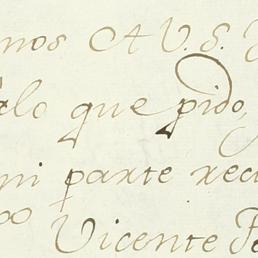 nos A V. S.
lo que pido,
mi parte reci
Vicente Fe